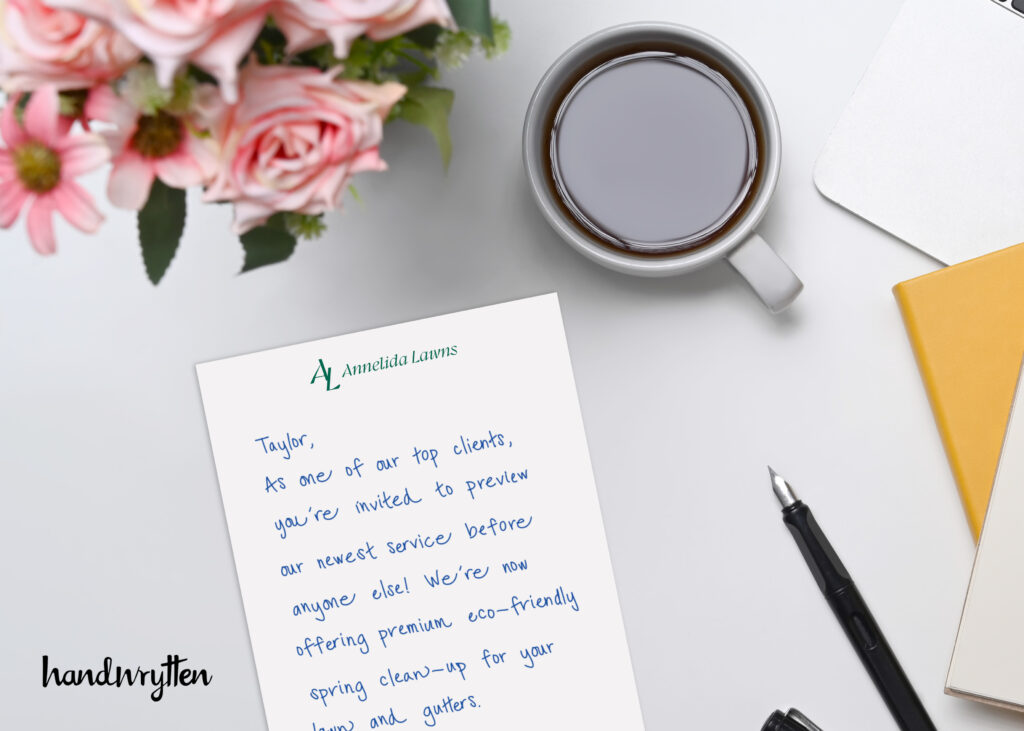 AL Annelida Lawns
Taylor,
As one of our top clients,
you're invited to preview
our newest service before
anyone else! We're now
offering premium eco-friendly
spring clean-up for your
lawn and gutters.
handwrytten